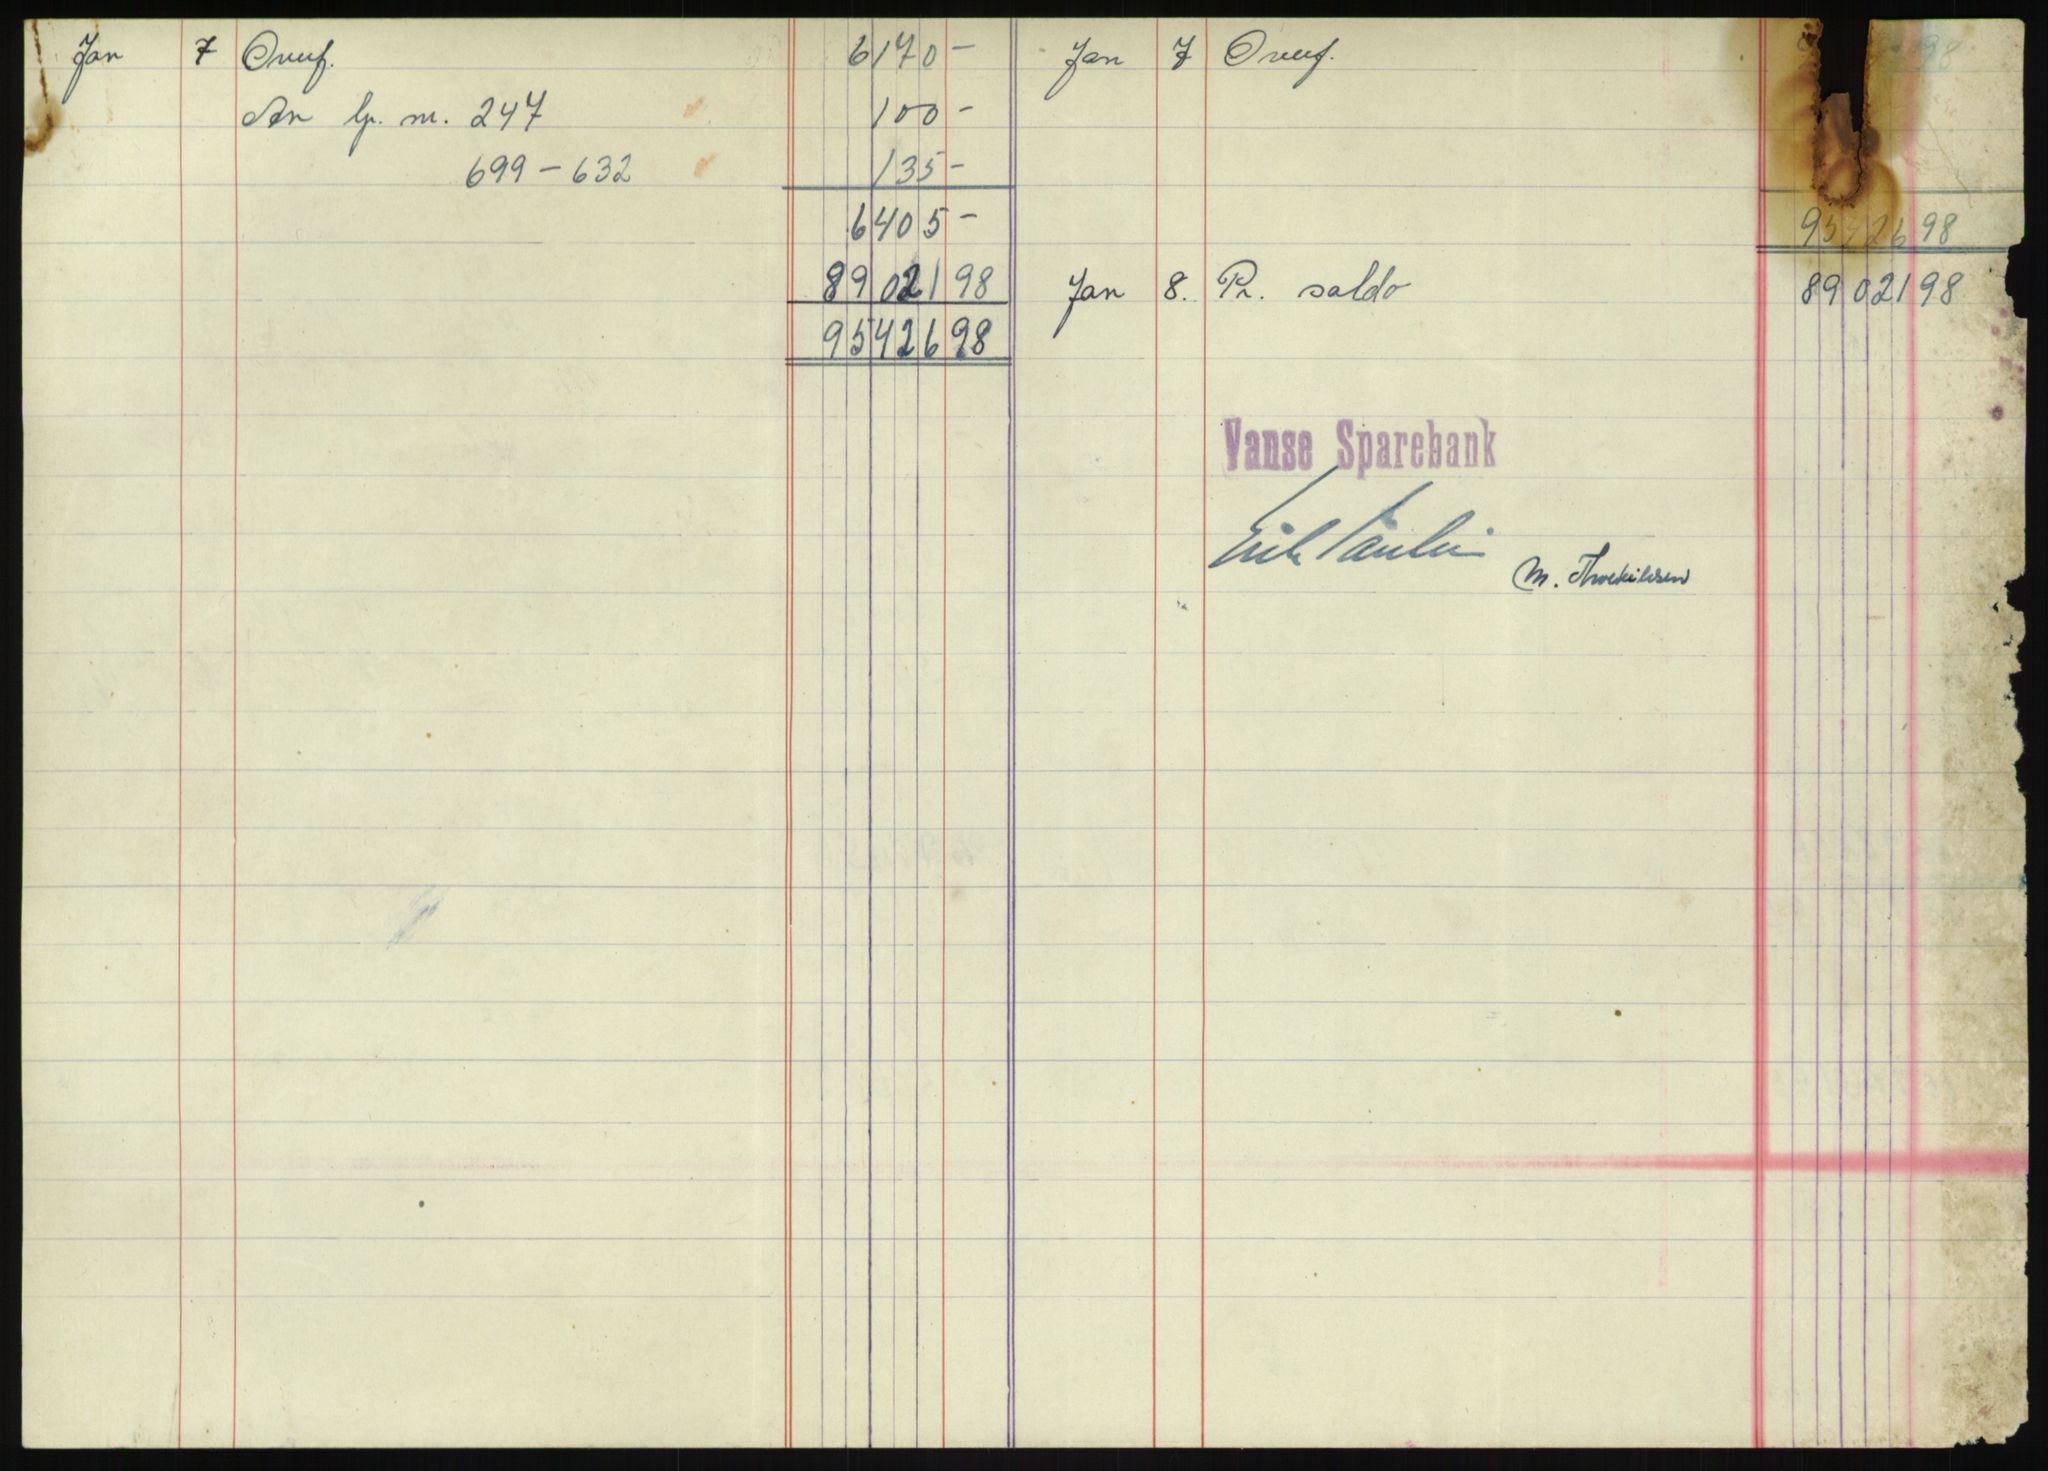 Jan 7 Overf. 6170 –
An lp. nr. 247 100 –
699 – 632 135 –
6405 –
89021 98
95426 98
Jan 7 Overf. 98
95426 98
Jan 8. Pr. saldo 89021 98
Vanse Sparebank
Erik
M.